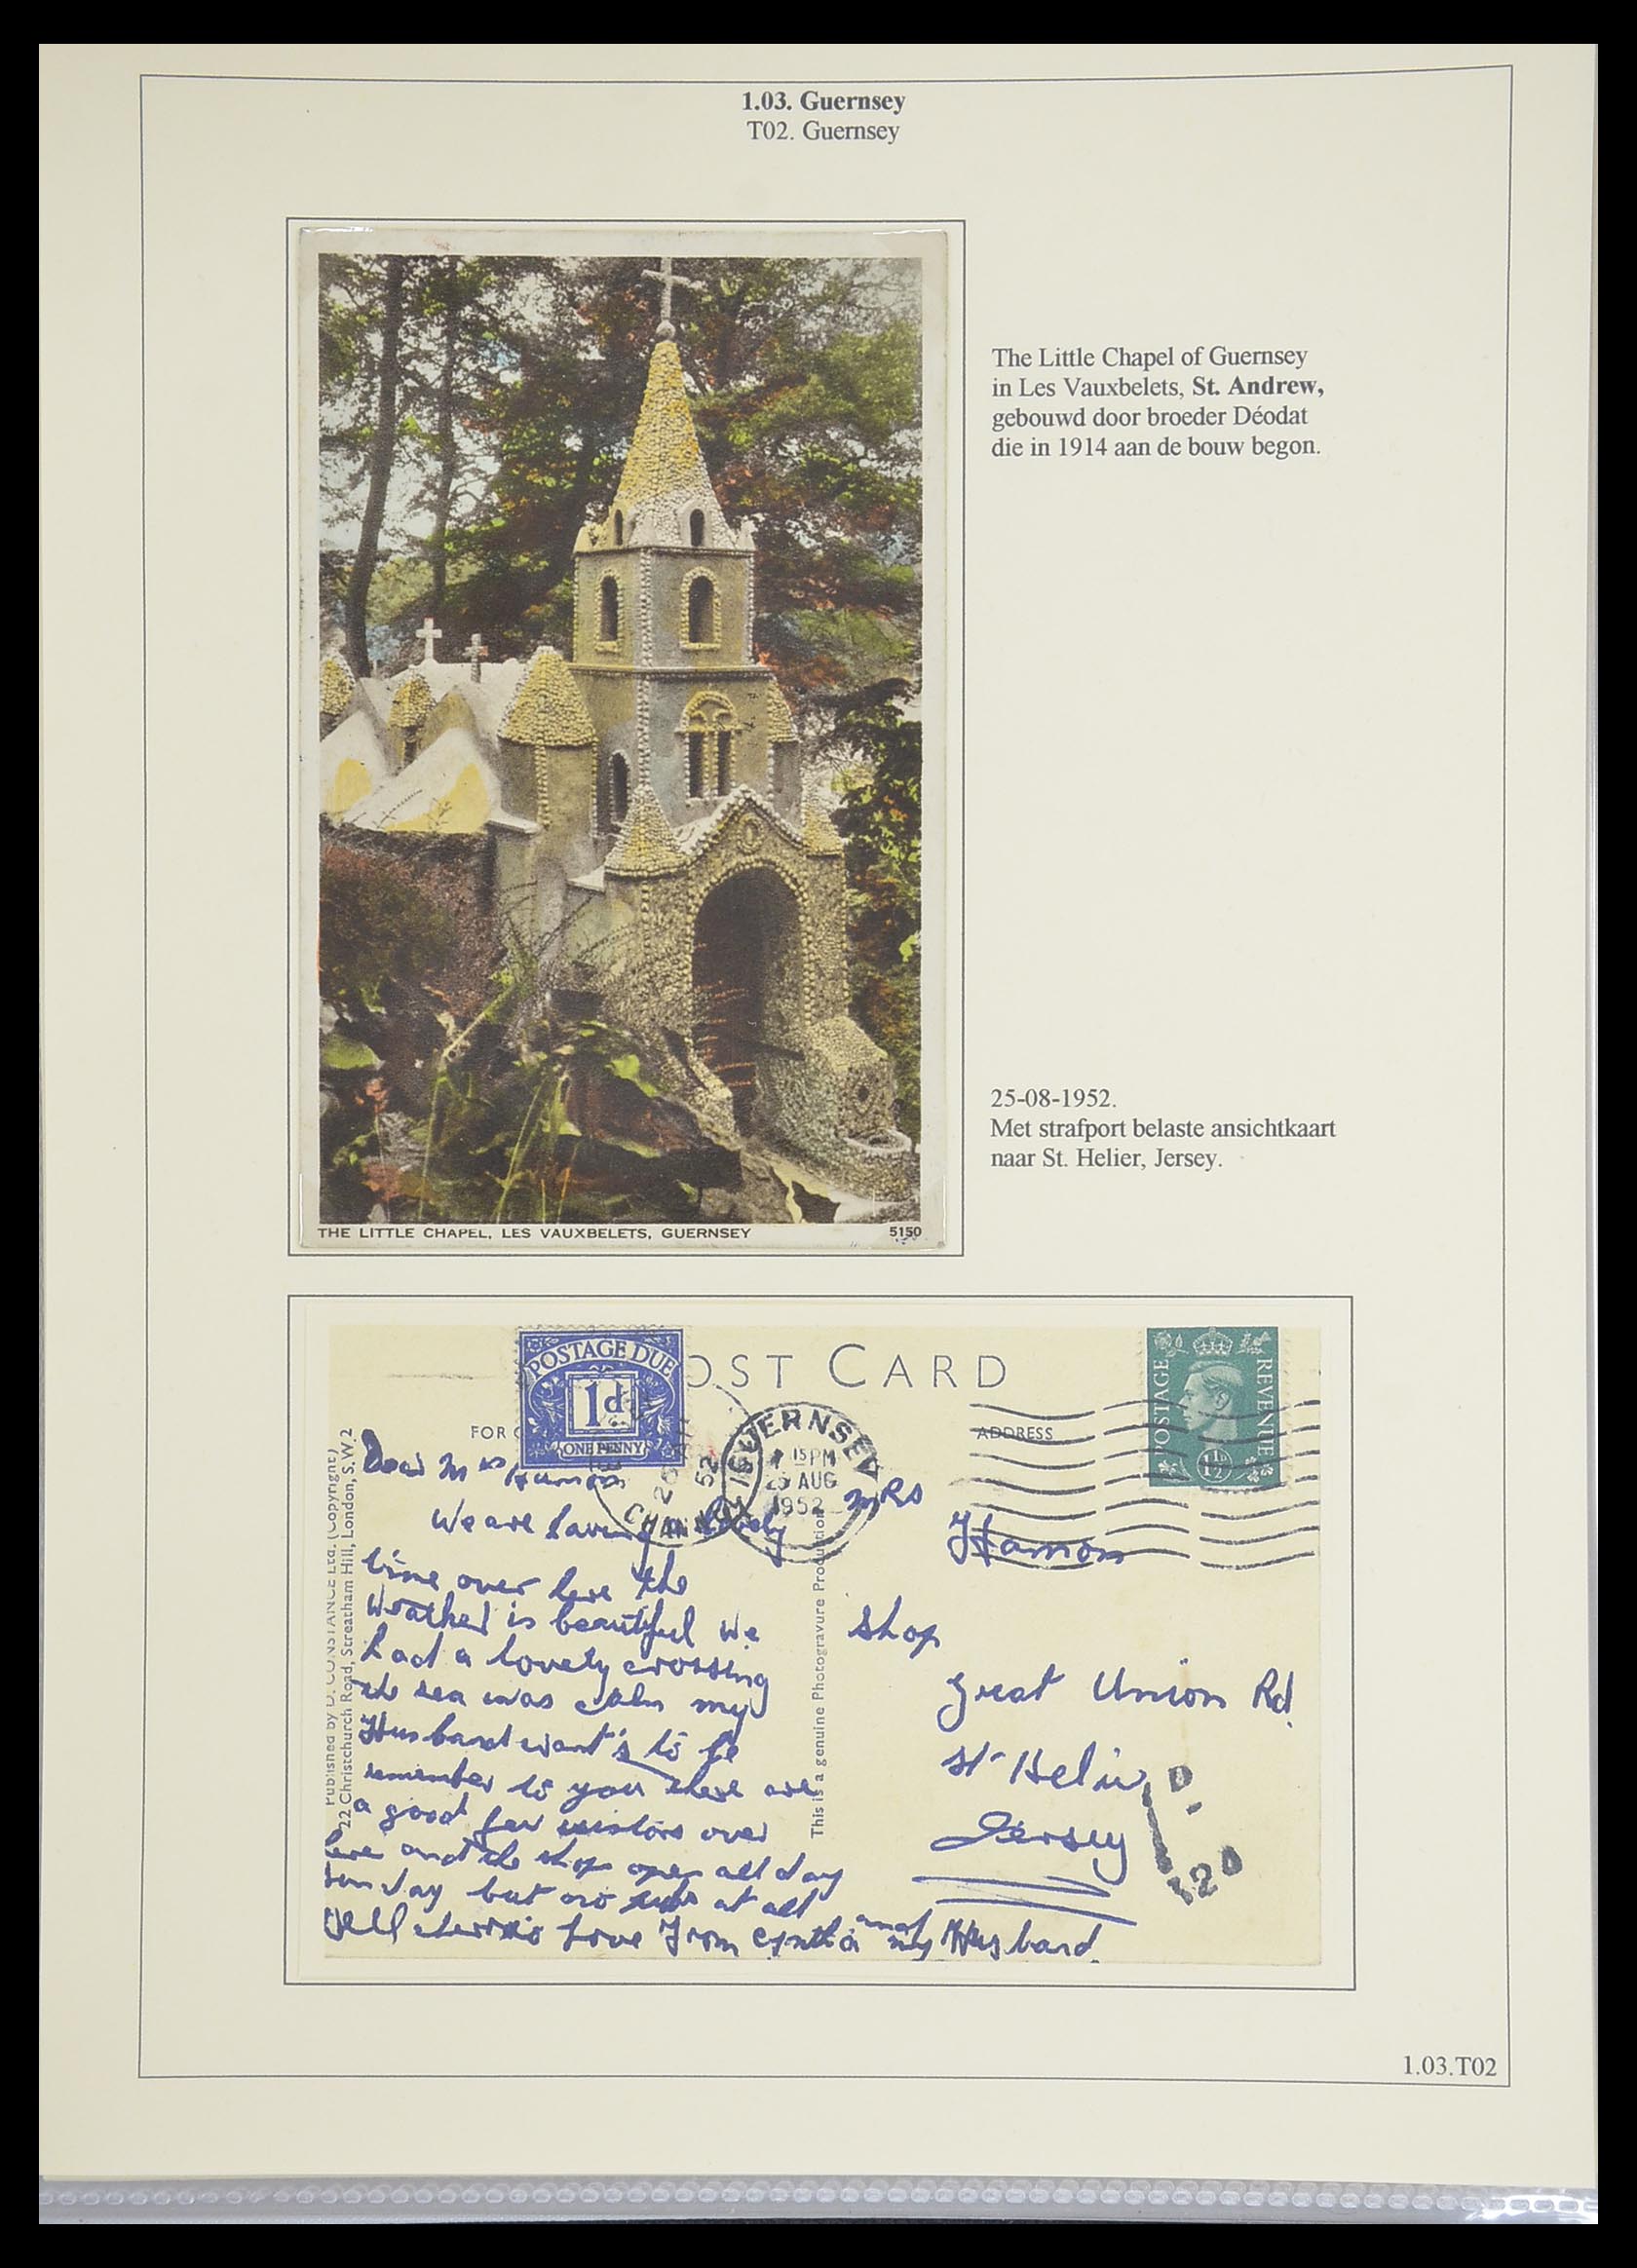 1.03. Guernsey
T02. Guernsey
The Little Chapel of Guernsey
in Les Vauxbelets, St. Andrew,
gebouwd door broeder Déodat
die in 1914 aan de bouw begon.
THE LITTLE CHAPEL, LES VAUXBELETS, GUERNSEY 5150
25-08-1952.
Met strafport belaste ansichtkaart
naar St. Helier, Jersey.
OST CARD
POSTAGE DUE
1d
ONE PENNY
POSTAGE REVENUE
1½
FOR
ADDRESS
GUERNSEY
15 PM
AUG
1952
52
CHANNEL IS
Published by D. CONSTANCE Ltd. (Copyright)
22 Christchurch Road, Streatham Hill, London, S.W.2
This is a genuine Photogravure Production
Dear Mrs Hamon
We are having a lovely
time over here the
weather is beautiful we
had a lovely crossing
the sea was calm my
Husband want's to be
remember to you there are
a good few visitors over
here and the shop open all day
sunday but no at all
Well cheerio Love From Cynthia and my Husband
MRS
Hamon
Shop
Great Union Rd.
St Helier
Jersey
D.
120
1.03.T02